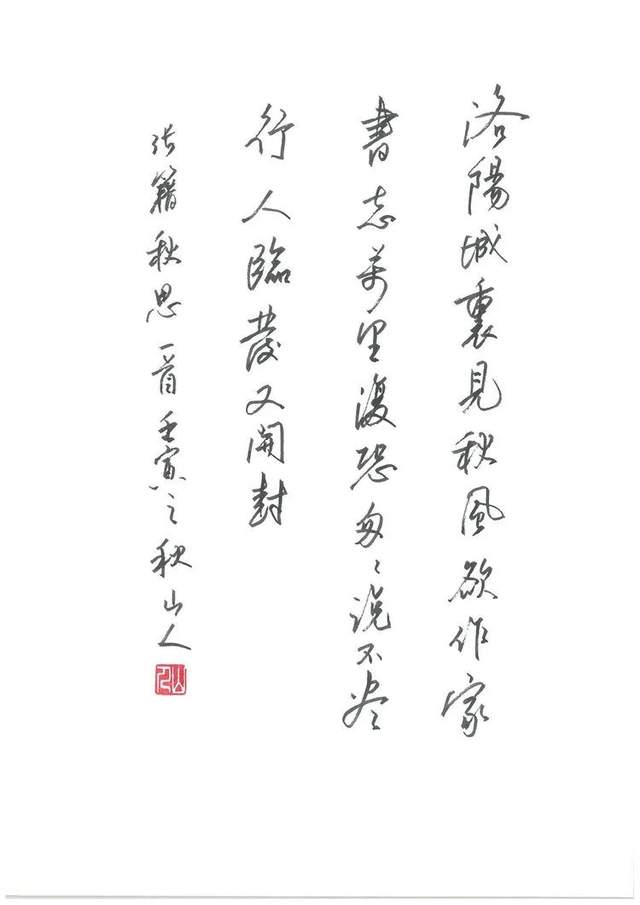 洛陽城裏見秋風欲作家
書意萬重復恐匆々说不尽
行人臨發又開封
张籍秋思一首壬寅之秋山人
山人